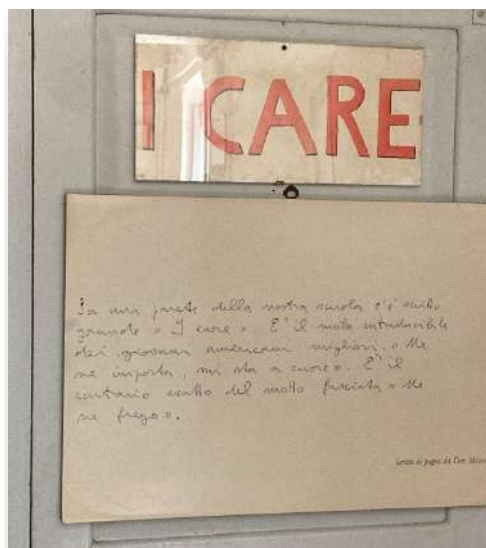 I CARE
Su una parete della nostra scuola c'è scritto
grande « I care ». E' il motto intraducibile
dei giovani americani migliori. « Me
ne importa, mi sta a cuore ». E' il
contrario esatto del motto fascista « Me
ne frego ».
scritto di pugno da Don Milani